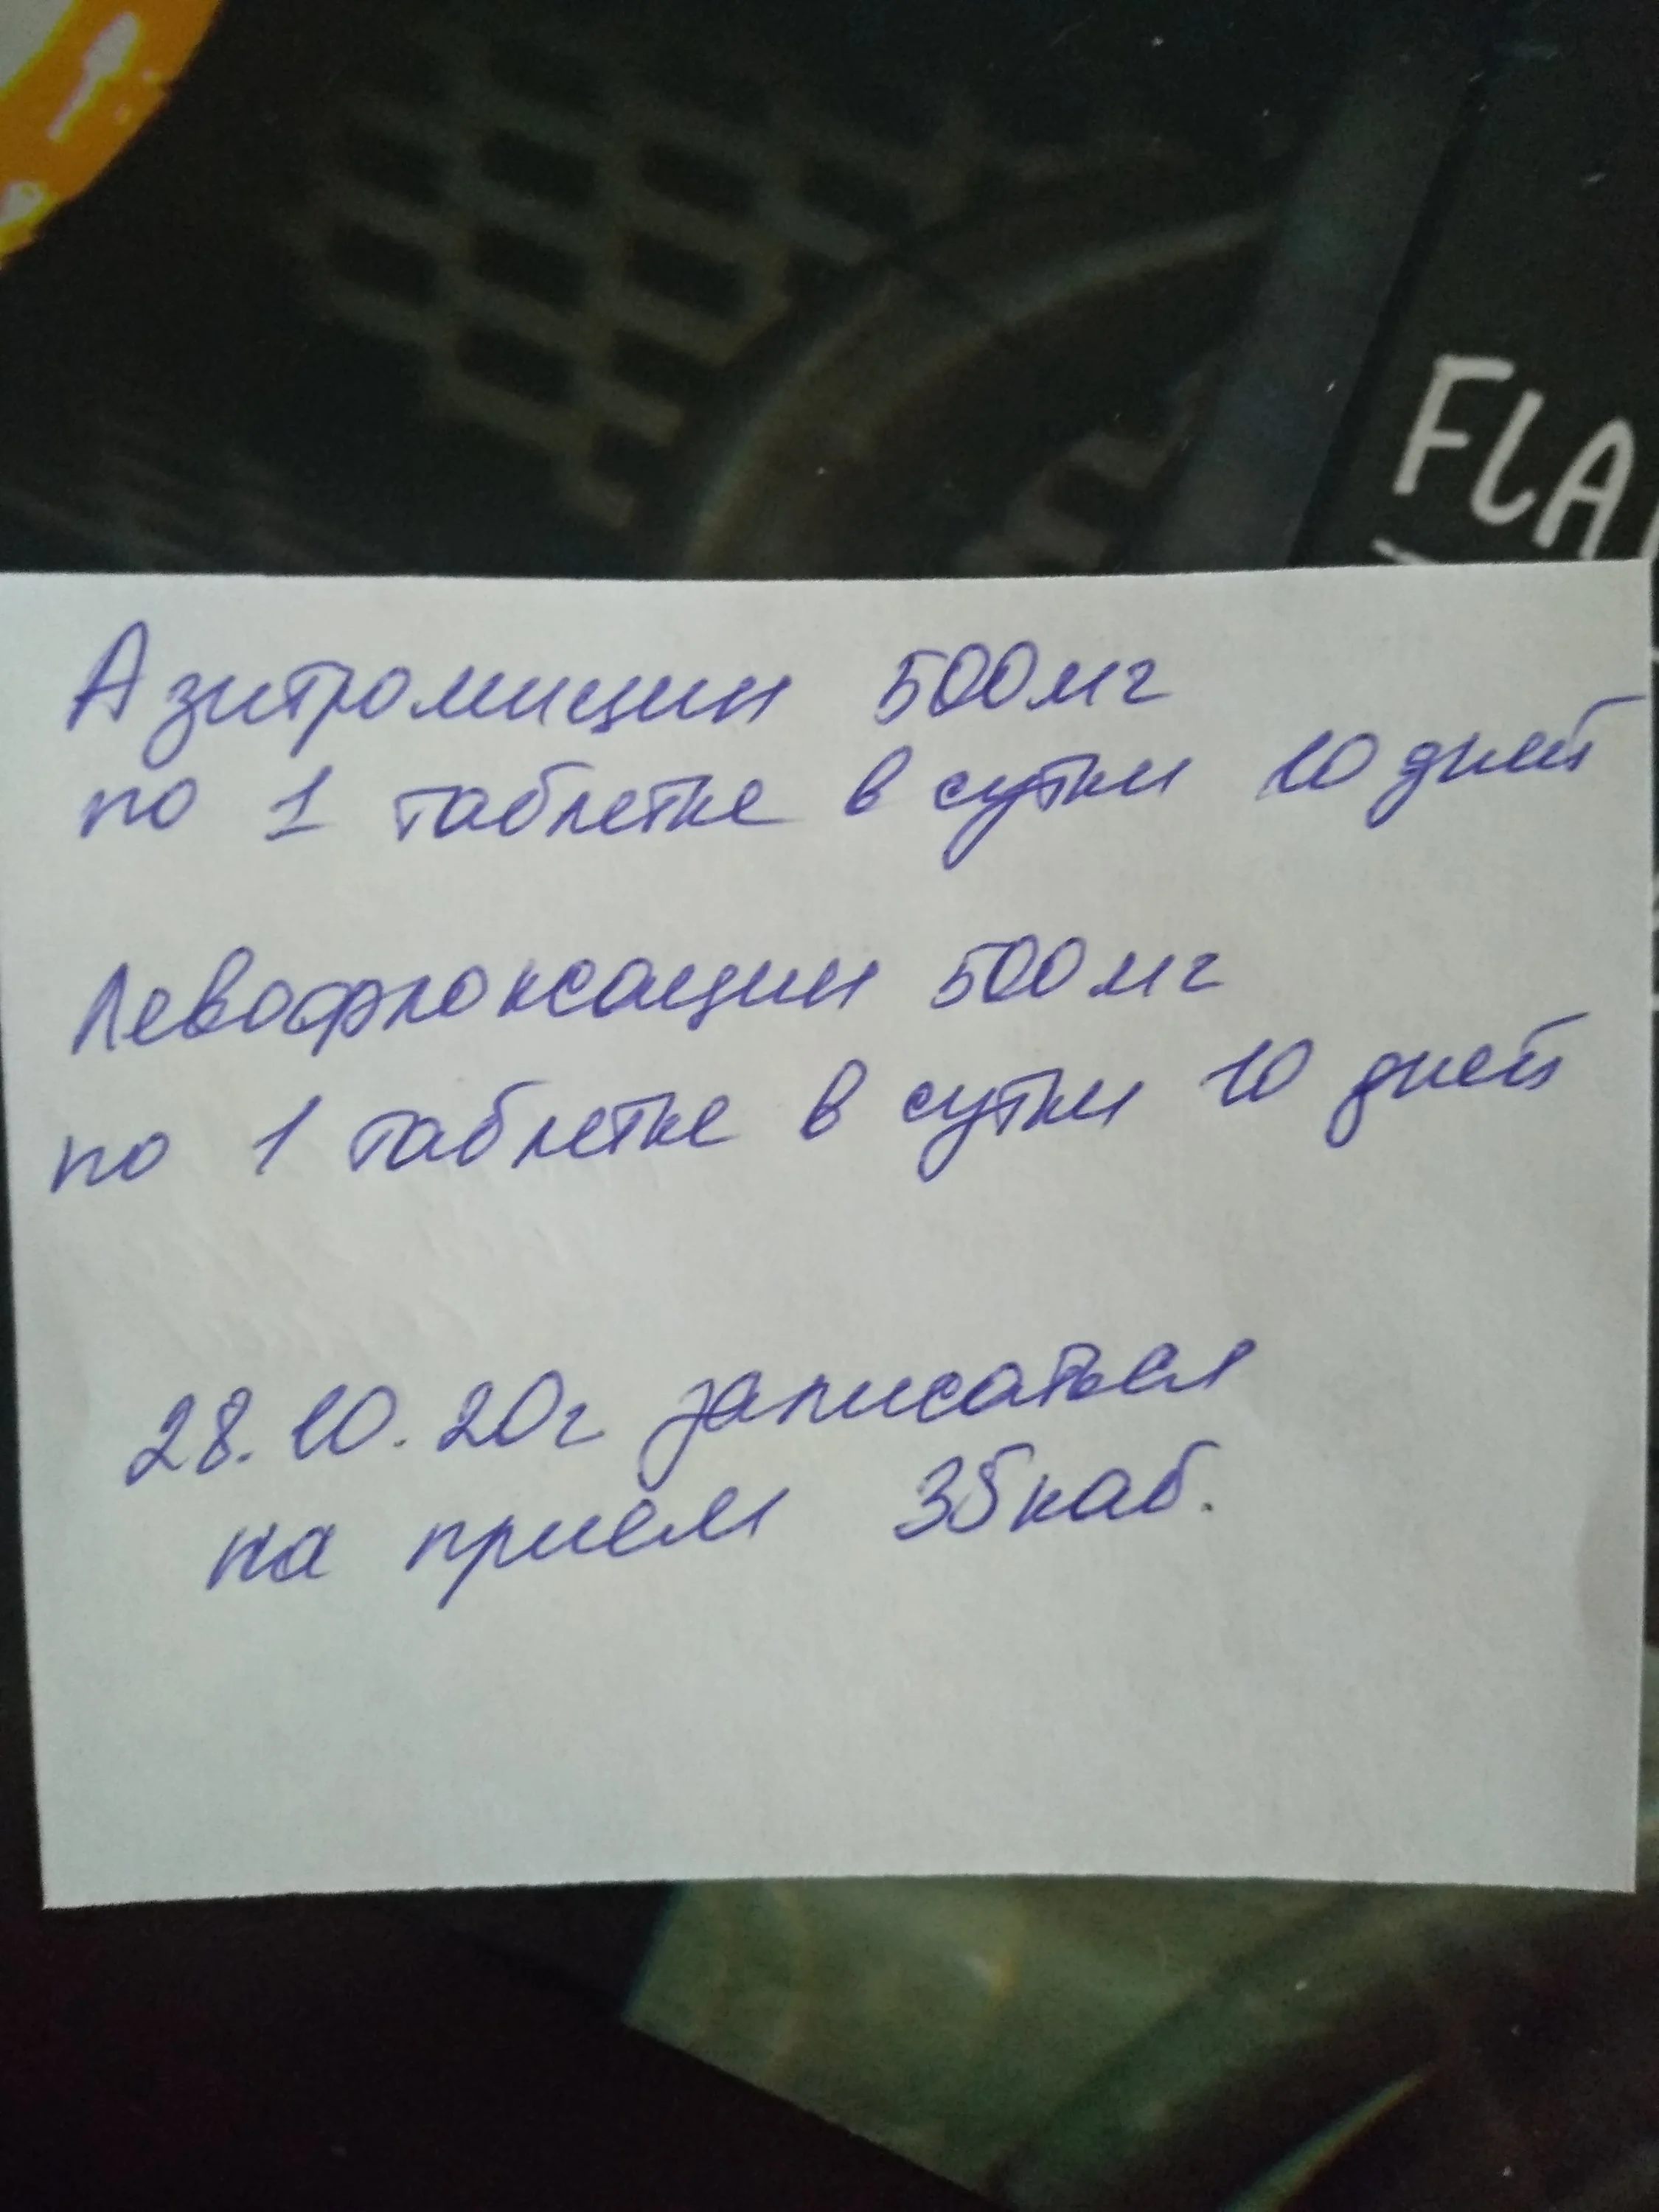 FLA
Азитромицин 500мг
по 1 таблетке в сутки 10 дней
Левофлоксацин 500мг
по 1 таблетке в сутки 10 дней
28.10.20г записаться
на прием 35каб.